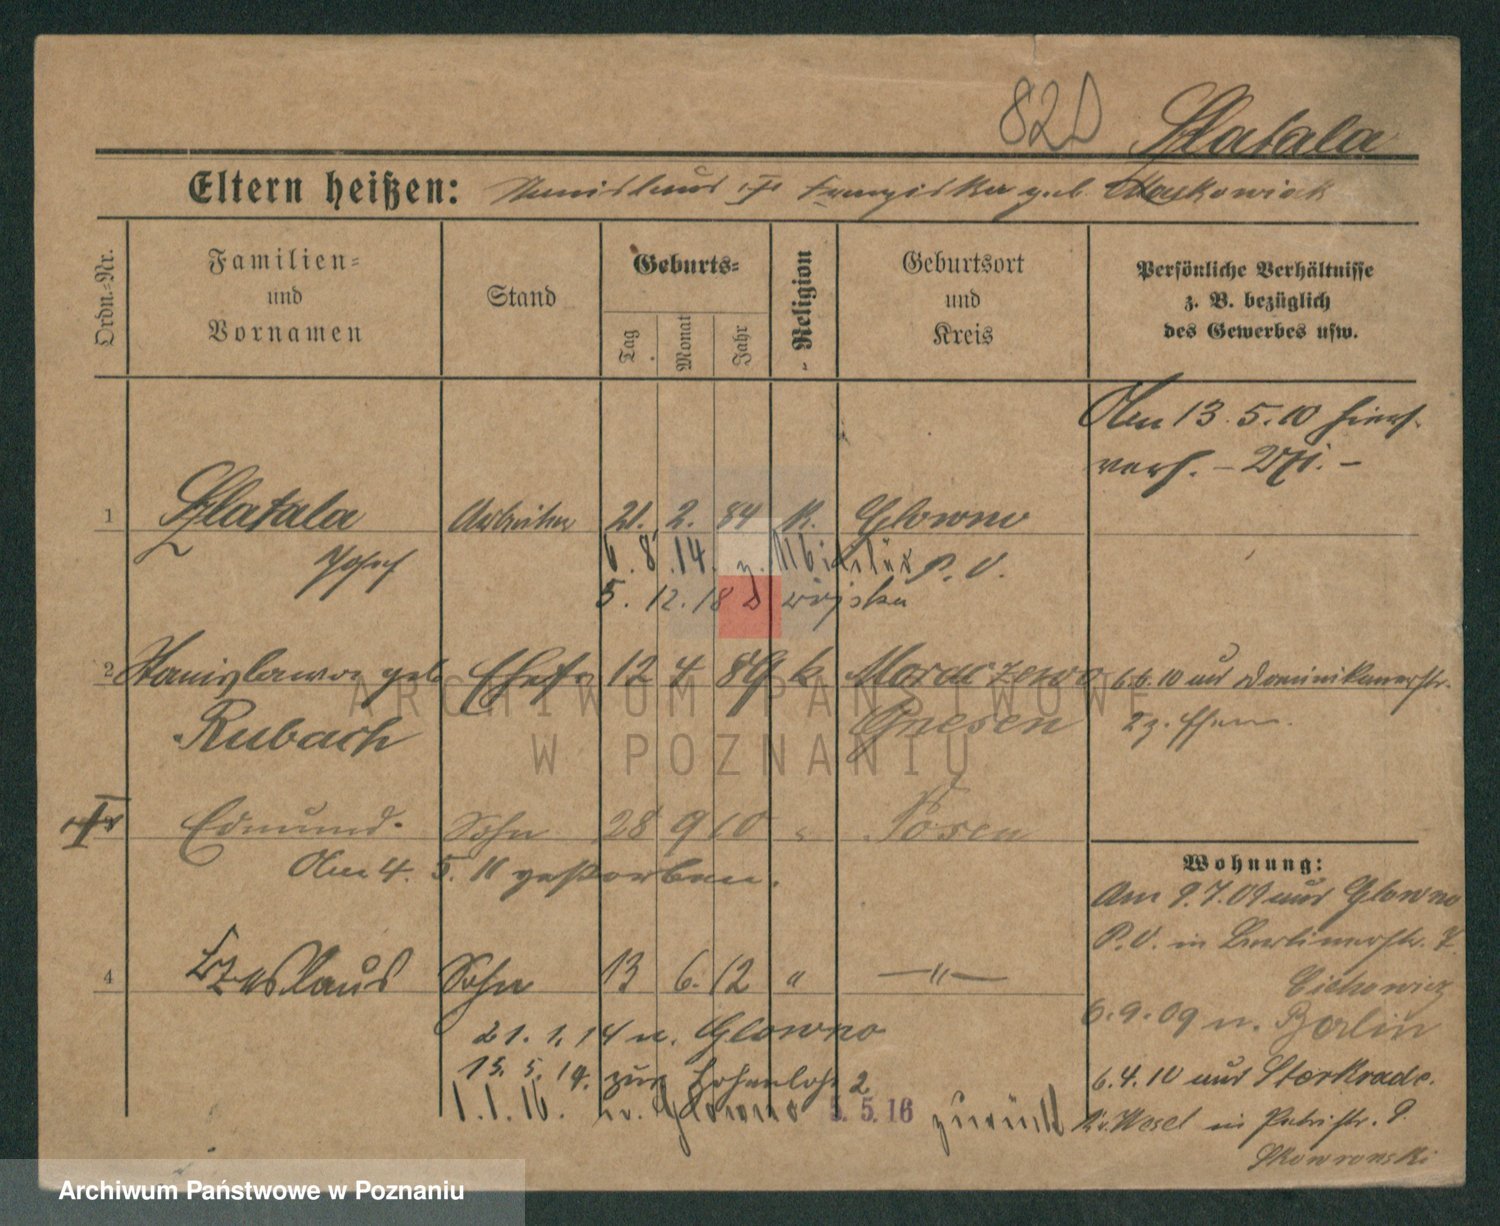 82D Szlatala
Eltern heißen: Stanislaus u. Franziska geb. Maskowiak
Ordn.=Nr.
Familien=
und
Vornamen
Stand
Geburts=
Tag
Monat
Jahr
Religion
Geburtsort
und
Kreis
Persönliche Verhältnisse
z. B. bezüglich
des Gewerbes usw.
Am 13.5.10 hiers.
verh.
1 Szlatala Arbeiter 21. 2. 84 K. Glowno
Josef P. O.
6.8.14. z. Militär
5.12.18 z wojska
2 Stanislawa geb. Ehefr. 12 4 89 k. 
Rubach Gnesen
6.6.10 aus Dominikanerstr.
2 z. Ehem.
Edmund Sohn 28 9 10 " Posen
Am 4. 5. 11 gestorben.
4 Czeslaus Sohn 13 6. 12 " — " —
21.1.14 n. Glowno
15.5.14. zur Hohenlohe 2
1.1.16. n. Glowno 5.5.16 zurück
Wohnung:
Am 9.7.09 aus Glowno
P.O. in Berlinerstr. 7
Cichowicz
6.9.09 n. Berlin
6.4.10 aus Sterkrade.
Kr. Wesel in Petristr. 9.
Skowronski
ARCHIWUM PAŃSTWOWE
W POZNANIU
Archiwum Państwowe w Poznaniu